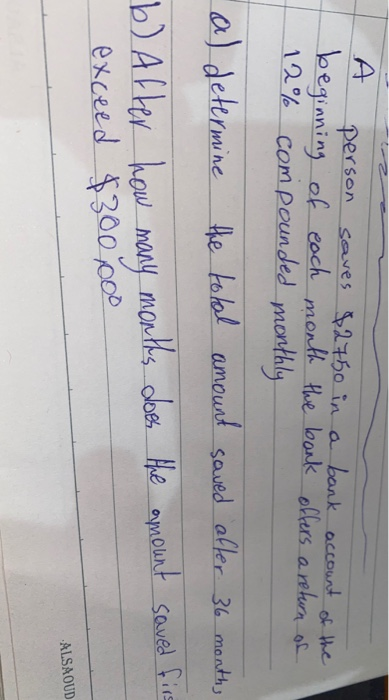 A person saves $2750 in a bank account at the
beginning of each month the bank offers a return of
12% compounded monthly
a) determine the total amount saved after 36 months
b) After how many months does the amount saved firs
exceed $300,000
ALSAOUD